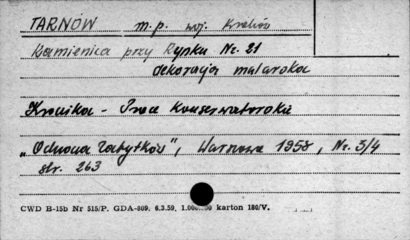 TARNÓW m.p. woj. Kraków
Kamienica przy Rynku Nr. 21
dekoracja malarska
Kronika - Prace konserwatorskie
„Odnowa Zabytków", Warszawa 1958, Nr. 3/4
str. 263
CWD B-15b Nr 515/P. GDA-809. 6.3.59, karton 180/V.